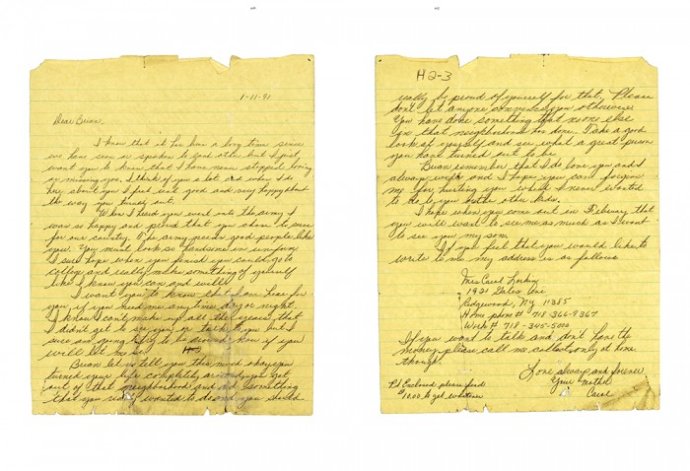 1-11-91
Dear Brian,
I know that it has been a long time since
we have seen or spoken to each other but I just
want you to know that I have never stopped loving
or missing you. I think of you a lot and when I do
hear about you I feel very good and very happy about
the way you turned out.
When I heard you went into the army I
was so happy and proud that you chose to serve
for our country. The army needs good people like
you. You must look so handsome in uniform
I sure hope when you finish you could go to
college and really make something of yourself
like I know you can and will.
I want you to know that I am here for
you if you need me any time day or night
I know I can't make up all the years that
I didn't get to see you or talk to you but I
sure am going to try to be around now if you
will let me.
Brian let me tell you this much okay you
turned your life completely around you got
out of that neighborhood and did something
that you really wanted to do and you should
H2-3
really be proud of yourself for that. Please
don't let anyone convince you otherwise.
You have done something that no one else
in that neighborhood has done. Take a good
look at yourself and see what a great person
you have turned out to be.
Brian remember that I do love you and I
always will and I hope you can forgive
me for hurting you which I never wanted
to do to you or the other kids.
I hope when you come out in February that
you will want to see me as much as I want
to see you my son.
If you feel that you would like to
write to me my address is as follows
Mrs Carol
1921
Ridgewood, NY 11385
Home phone # 718 366-9367
Work # 718-345-5000
If you want to talk and don't have the
money please call me collect only at home
though.
Love always and forever
Your mother
Carol
P.S. Enclosed please find
$10.00 to get whatever